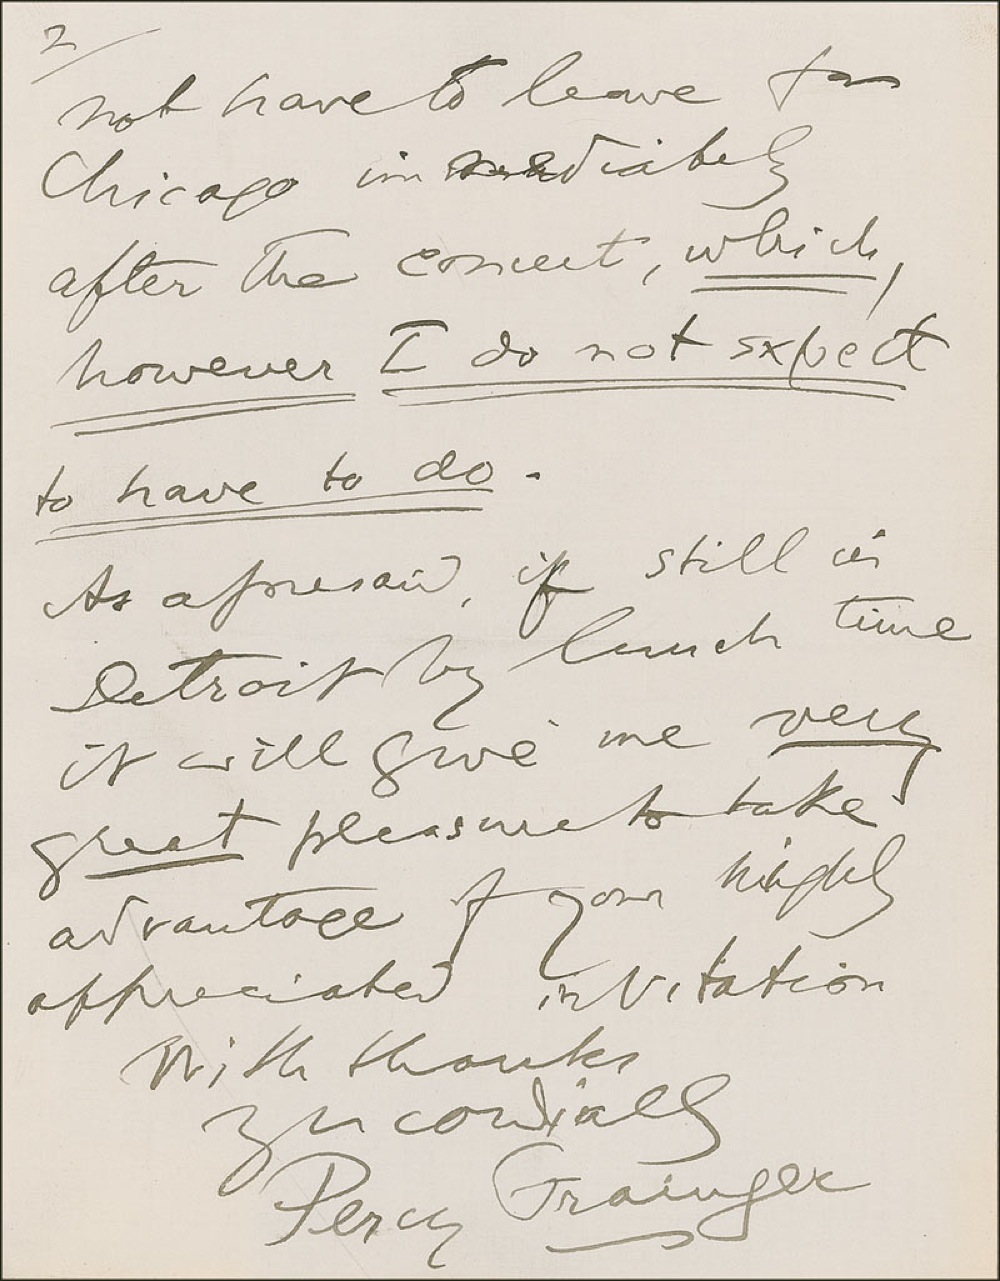 2/
not have to leave for
Chicago immediately
after the concert, which,
however I do not expect
to have to do.
As aforesaid, if still in
Detroit by lunch time
it will give me very
great pleasure to take
advantage of your highly
appreciated invitation
With thanks
Yrs cordially
Percy Grainger